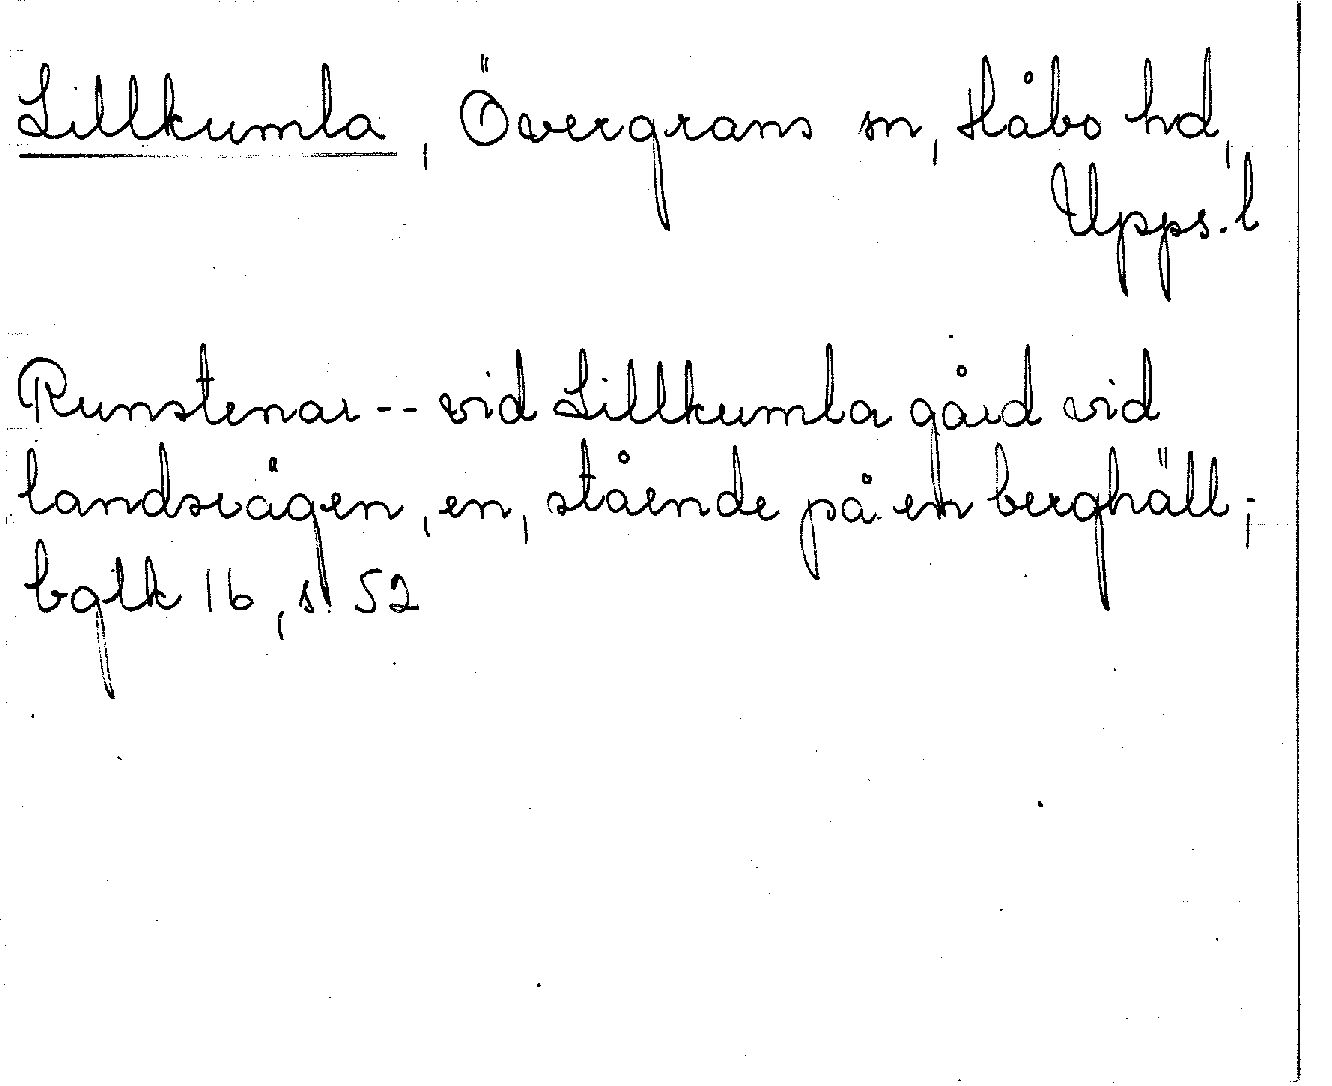 Lillkumla, Övergrans sn, Håbo hd,
Upps. l
Runstenar -- vid Lillkumla gård vid
landsvägen, en, stående på en berghäll;
bglk 16, s. 52